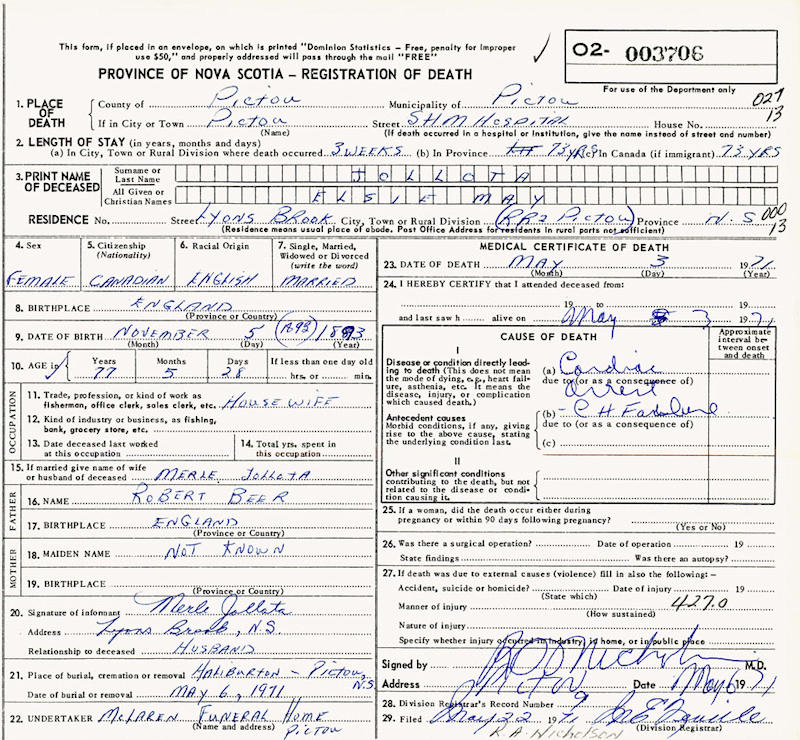 This form, if placed in an envelope, on which is printed "Dominion Statistics – Free, penalty for improper
use $50," and properly addressed will pass through the mail "FREE"
PROVINCE OF NOVA SCOTIA – REGISTRATION OF DEATH
02- 003706
For use of the Department only
027
13
1. PLACE OF DEATH
County of PICTOU Municipality of PICTOU
If in City or Town PICTOU Street SHM HOSPITAL House No.
(Name) (If death occurred in a hospital or Institution, give the name instead of street and number)
2. LENGTH OF STAY (in years, months and days)
(a) In City, Town or Rural Division where death occurred 3 WEEKS (b) In Province 73 YRS (c) In Canada (if immigrant) 73 YRS
3. PRINT NAME OF DECEASED
Surname or Last Name JOLLOTA
All Given or Christian Names ELSIE MAY
RESIDENCE No. Street LYONS BROOK City, Town or Rural Division (RR2 PICTOU) Province N.S 000
13
(Residence means usual place of abode. Post Office Address for residents in rural parts not sufficient)
4. Sex
FEMALE
5. Citizenship
(Nationality)
CANADIAN
6. Racial Origin
ENGLISH
7. Single, Married,
Widowed or Divorced
(write the word)
MARRIED
8. BIRTHPLACE ENGLAND
(Province or Country)
9. DATE OF BIRTH NOVEMBER 5 (1893) 1893
(Month) (Day) (Year)
10. AGE in
Years Months Days If less than one day old
77 5 28 hrs. or min.
OCCUPATION
11. Trade, profession, or kind of work as
fisherman, office clerk, sales clerk, etc. HOUSEWIFE
12. Kind of industry or business, as fishing,
bank, grocery store, etc.
13. Date deceased last worked
at this occupation
14. Total yrs. spent in
this occupation
15. If married give name of wife
or husband of deceased MERLE JOLLOTA
FATHER
16. NAME ROBERT BEER
17. BIRTHPLACE ENGLAND
(Province or Country)
MOTHER
18. MAIDEN NAME NOT KNOWN
19. BIRTHPLACE
(Province or Country)
20. Signature of informant Merle Jollota
Address Lyons Brook, N.S.
Relationship to deceased HUSBAND
21. Place of burial, cremation or removal HALIBURTON – PICTOU, N.S.
Date of burial or removal MAY 6, 1971
22. UNDERTAKER McLAREN FUNERAL HOME
(Name and address) PICTOU
MEDICAL CERTIFICATE OF DEATH
23. DATE OF DEATH MAY 3 1971
(Month) (Day) (Year)
24. I HEREBY CERTIFY that I attended deceased from:
19 to 19
and last saw h alive on May 3 1971
CAUSE OF DEATH
Approximate interval between onset and death
I
Disease or condition directly leading to death (This does not mean
the mode of dying, e.g., heart failure, asthenia, etc. It means the
disease, injury, or complication
which caused death.)
(a) Cardiac
due to (or as a consequence of)
arrest
Antecedent causes
Morbid conditions, if any, giving
rise to the above cause, stating
the underlying condition last.
(b) – C H Failure
due to (or as a consequence of)
(c)
II
Other significant conditions
contributing to the death, but not
related to the disease or condition causing it.
25. If a woman, did the death occur either during
pregnancy or within 90 days following pregnancy?
(Yes or No)
26. Was there a surgical operation? Date of operation 19
State findings Was there an autopsy?
27. If death was due to external causes (violence) fill in also the following:–
Accident, suicide or homicide? Date of injury 19
(State which)
Manner of injury 427.0
(How sustained)
Nature of injury
Specify whether injury occurred in industry, in home, or in public place
Signed by M.D.
Address Pictou Date May 6 1971
28. Division Registrar's Record Number 9
29. Filed May 22 1971
(Division Registrar)
R.A. Nicholson